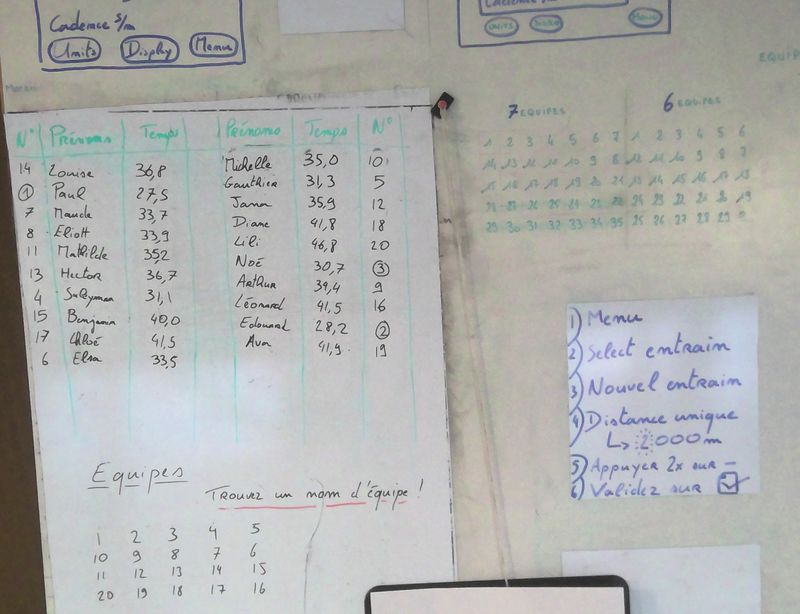 Cadence s/m
Units Display Menu
UNITS
MENU
N° Prénoms Temps Prénoms Temps N°
14 Louise 36,8 Michelle 35,0 10
① Paul 27,5 Gauthier 31,3 5
7 Maude 33,7 Jana 35,9 12
8 Eliott 33,9 Diane 41,8 18
11 Mathilde 35,2 Lili 46,8 20
13 Hector 36,7 Noé 30,7 ③
4 Suleyman 31,1 Arthur 34,4 9
15 Benjamin 40,0 Léonard 41,5 16
17 Chloé 41,5 Edouard 28,2 ②
6 Elsa 33,5 Ava 41,9 19
Equipes
Trouvez un nom d'équipe !
1 2 3 4 5
10 9 8 7 6
11 12 13 14 15
20 19 18 17 16
EQUIPE
7 EQUIPES 6 EQUIPES
1 2 3 4 5 6 7 1 2 3 4 5 6
14 13 12 11 10 9 8 12 11 10 9 8 7
15 16 17 18 19 20 21 13 14 15 16 17 18
28 27 26 25 24 23 22 24 23 22 21 20 19
29 30 31 32 33 34 35 25 26 27 28 29
1) Menu
2) Select entrain
3) Nouvel entrain
4) Distance unique
↳ 2000m
5) Appuyer 2x sur –
6) Validez sur ☑